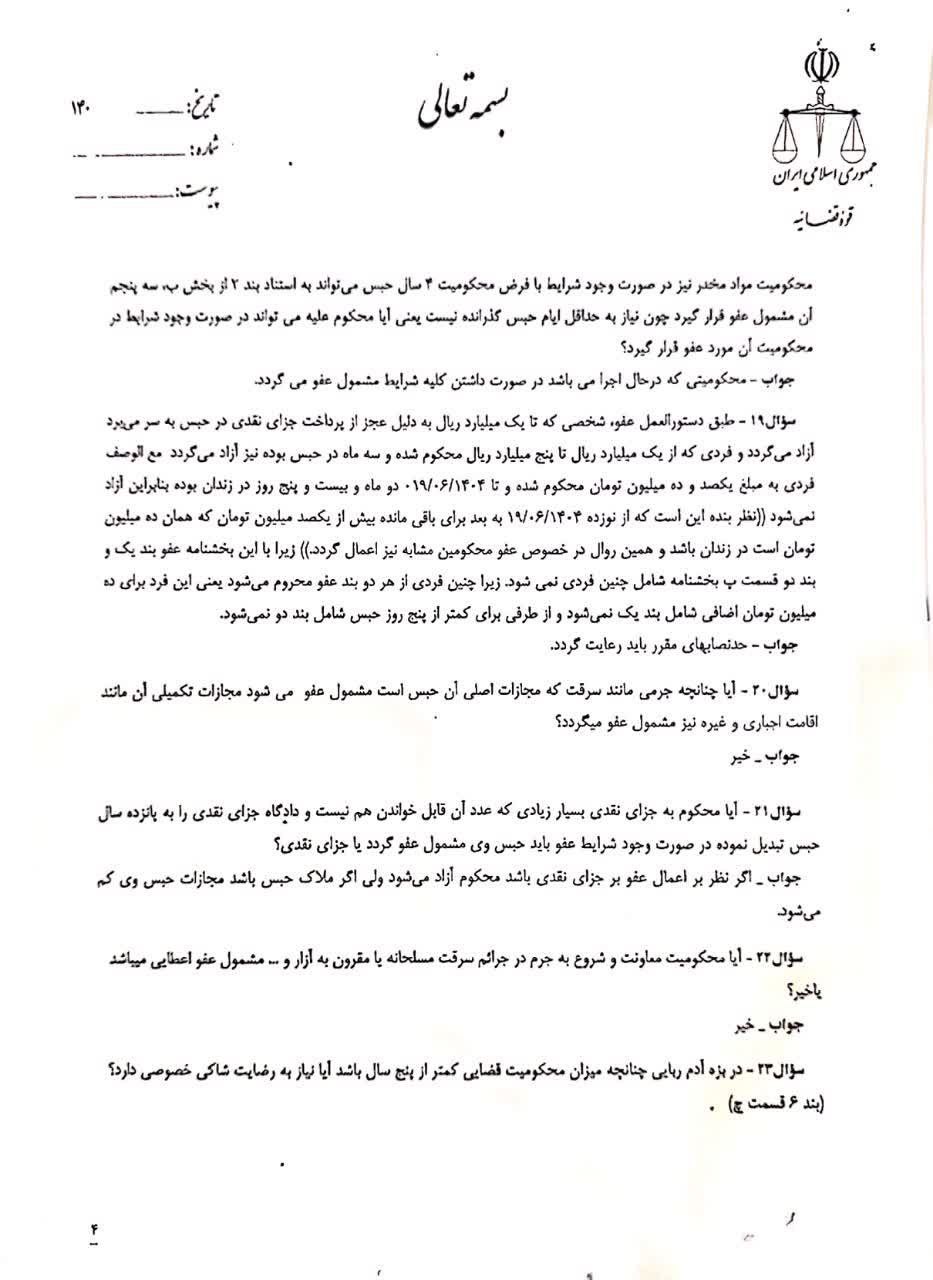 ۴
بسمه تعالی
جمهوری اسلامی ایران
قوه قضائیه
تاریخ: ۱۴۰
شماره:
پیوست:
محکومیت مواد مخدر نیز در صورت وجود شرایط با فرض محکومیت ۴ سال حبس می‌تواند به استناد بند ۲ از بخش ب، سه پنجم
آن مشمول عفو قرار گیرد چون نیاز به حداقل ایام حبس گذرانده نیست یعنی آیا محکوم علیه می تواند در صورت وجود شرایط در
محکومیت آن مورد عفو قرار گیرد؟
جواب - محکومیتی که درحال اجرا می باشد در صورت داشتن کلیه شرایط مشمول عفو می گردد.
سؤال۱۹ - طبق دستورالعمل عفو، شخصی که تا یک میلیارد ریال به دلیل عجز از پرداخت جزای نقدی در حبس به سر می‌برد
آزاد می‌گردد و فردی که از یک میلیارد ریال تا پنج میلیارد ریال محکوم شده و سه ماه در حبس بوده نیز آزاد می‌گردد مع الوصف
فردی به مبلغ یکصد و ده میلیون تومان محکوم شده و تا ۰۱۹/۰۶/۱۴۰۴ دو ماه و بیست و پنج روز در زندان بوده بنابراین آزاد
نمی‌شود ((نظر بنده این است که از نوزده ۱۹/۰۶/۱۴۰۴ به بعد برای باقی مانده بیش از یکصد میلیون تومان که همان ده میلیون
تومان است در زندان باشد و همین روال در خصوص عفو محکومین مشابه نیز اعمال گردد.)) زیرا با این بخشنامه عفو بند یک و
بند دو قسمت پ بخشنامه شامل چنین فردی نمی شود. زیرا چنین فردی از هر دو بند عفو محروم می‌شود یعنی این فرد برای ده
میلیون تومان اضافی شامل بند یک نمی‌شود و از طرفی برای کمتر از پنج روز حبس شامل بند دو نمی‌شود.
جواب - حدنصابهای مقرر باید رعایت گردد.
سؤال۲۰ - آیا چنانچه جرمی مانند سرقت که مجازات اصلی آن حبس است مشمول عفو می شود مجازات تکمیلی آن مانند
اقامت اجباری و غیره نیز مشمول عفو میگردد؟
جواب _ خیر
سؤال۲۱ - آیا محکوم به جزای نقدی بسیار زیادی که عدد آن قابل خواندن هم نیست و دادگاه جزای نقدی را به پانزده سال
حبس تبدیل نموده در صورت وجود شرایط عفو باید حبس وی مشمول عفو گردد یا جزای نقدی؟
جواب _ اگر نظر بر اعمال عفو بر جزای نقدی باشد محکوم آزاد می‌شود ولی اگر ملاک حبس باشد مجازات حبس وی کم
می‌شود.
سؤال۲۲ - آیا محکومیت معاونت و شروع به جرم در جرائم سرقت مسلحانه یا مقرون به آزار و ... مشمول عفو اعطایی میباشد
یاخیر؟
جواب _ خیر
سؤال۲۳ - در بزه آدم ربایی چنانچه میزان محکومیت قضایی کمتر از پنج سال باشد آیا نیاز به رضایت شاکی خصوصی دارد؟
(بند ۶ قسمت چ)
۴